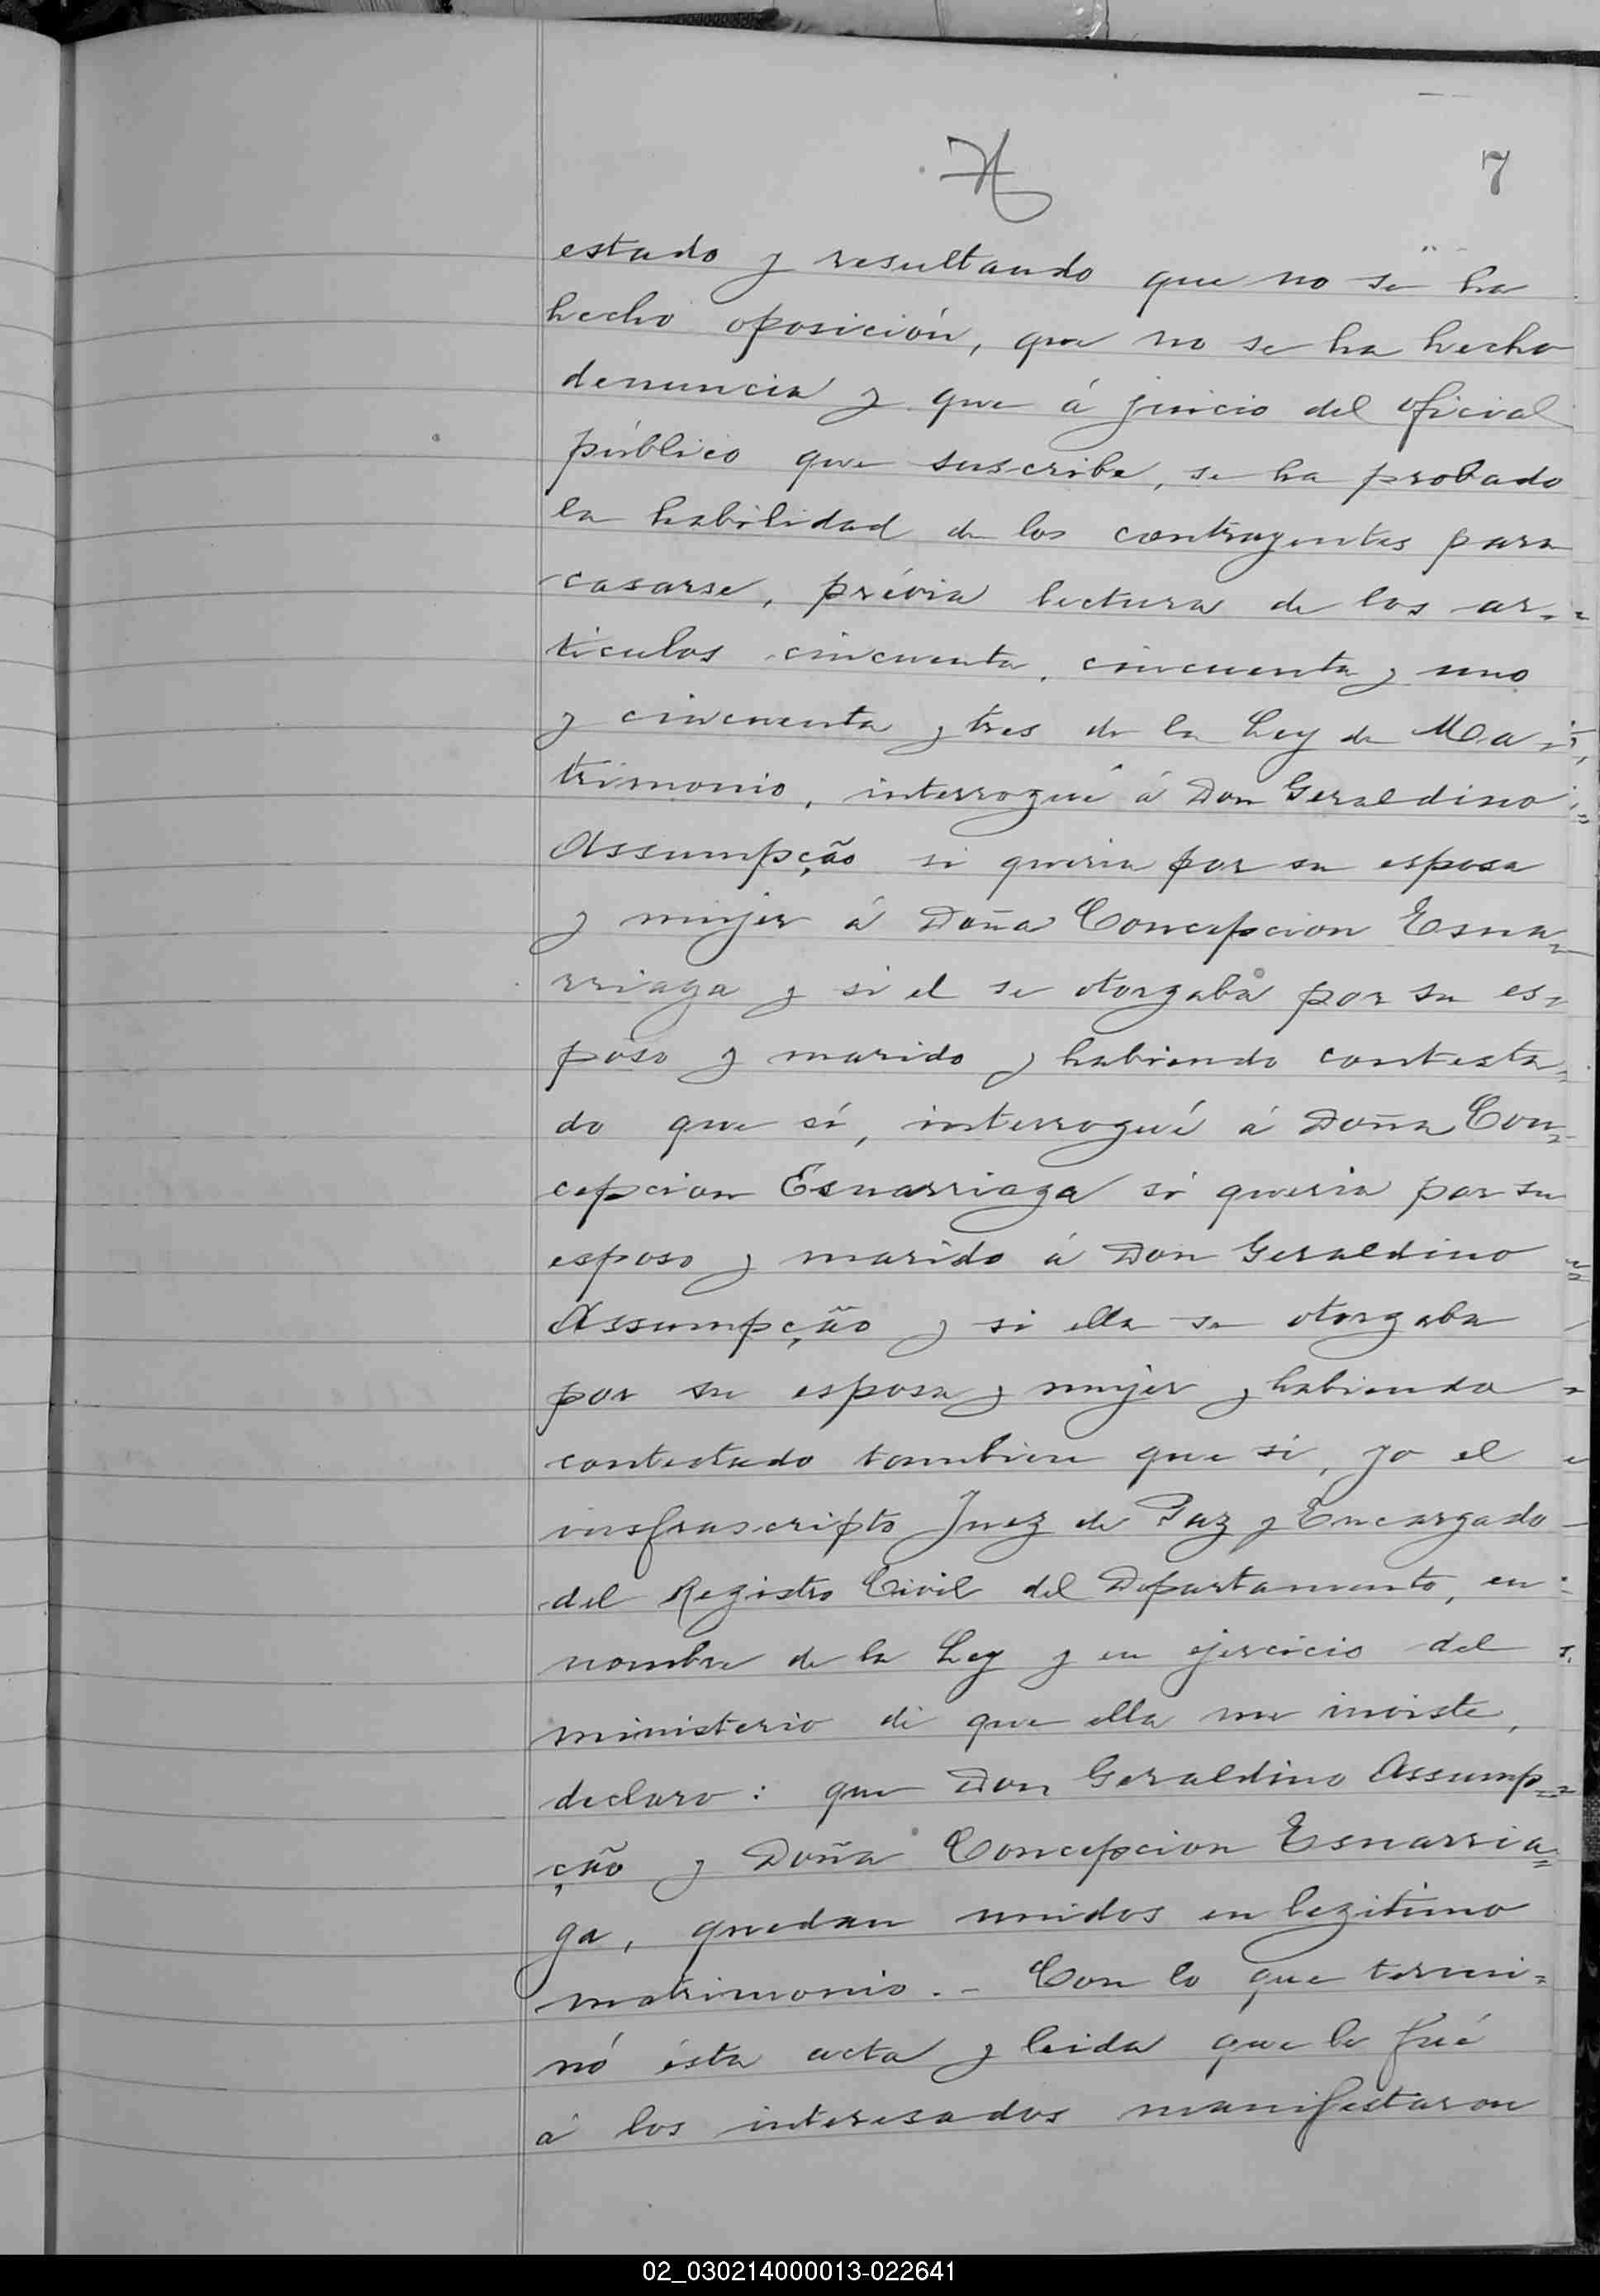 7
estado y resultando que no se ha
hecho oposición, que no se ha hecho
denuncia y que á juicio del oficial
público que suscribe, se ha probado
la habilidad de los contrayentes para
casarse, prévia lectura de los ar-
ticulos cincuenta, cincuenta y uno
y cincuenta y tres de la Ley de Ma-
trimonio, interrogué á Don Geraldino
Assumpção si queria por su esposa
y mujer á Doña Concepcion Esna-
rriaga y si el se otorgaba por su es-
poso y marido y habiendo contesta-
do que sí, interrogué á Doña Con-
cepcion Esnarriaga si queria por su
esposo y marido á Don Geraldino
Assumpção y si ella se otorgaba
por su esposa y mujer y habiendo
contestado tambien que si, yo el
insfrascripto Juez de Paz y Encargado
del Registro Civil del Departamento, en
nombre de la Ley y en ejercicio del
ministerio de que ella me inviste,
declaro: que Don Geraldino Assump=
ção y Doña Concepcion Esnarria=
ga, quedan unidos en legitimo
matrimonio.- Con lo que termi=
nó ésta acta y leida que le fué
á los interesados manifestaron
02_030214000013-022641